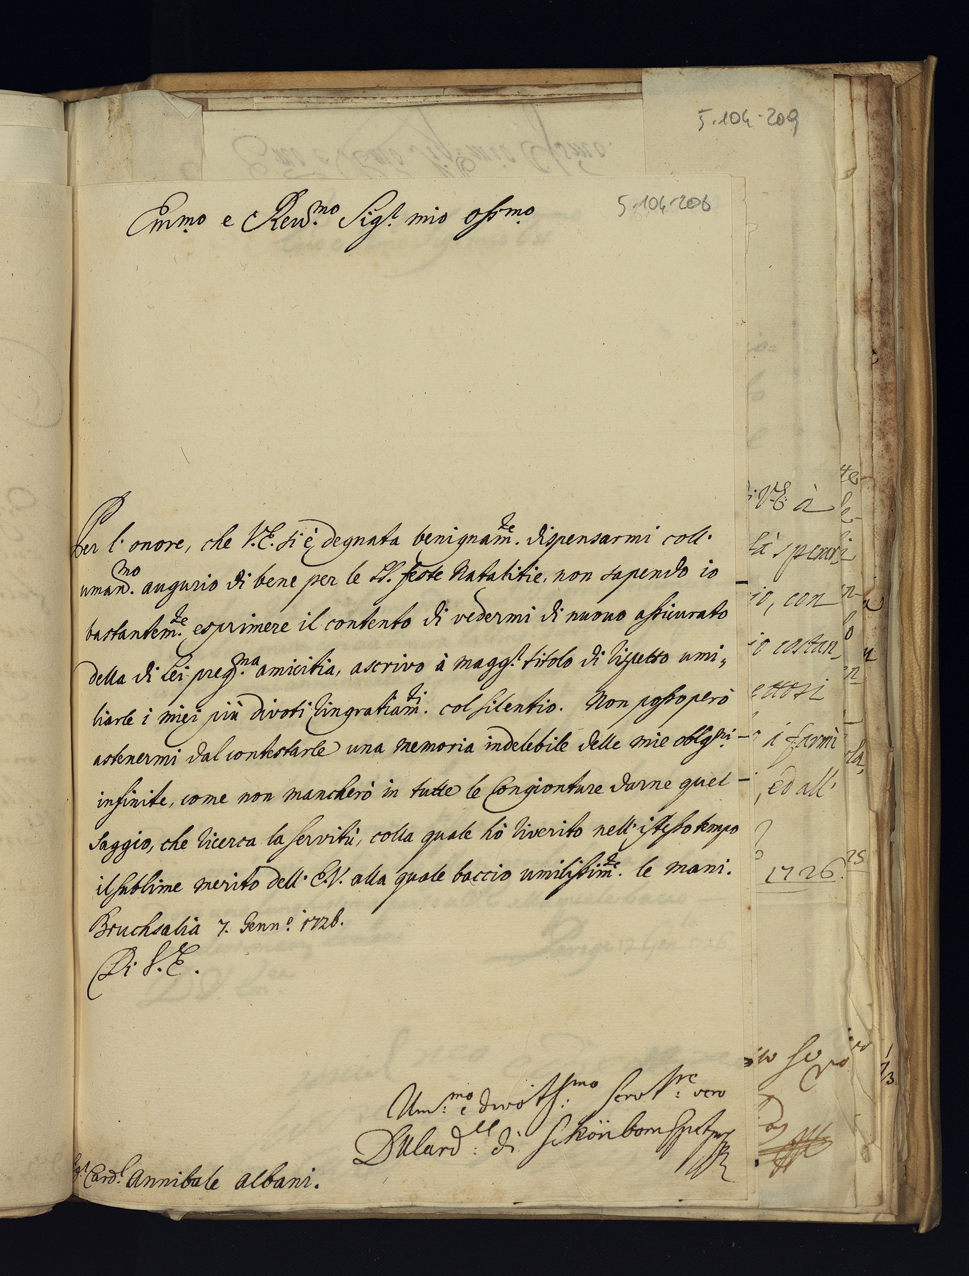 5.104-209
5.104-206
Em.mo e Reu.mo Sig.r mio oss.mo
Per l'onore, che V.E. si è degnata benignam.te dispensarmi coll'
uman.mo augurio di bene per le SS. feste Natalitie, non sapendo io
bastantem.te esprimere il contento di vedermi di nuouo assicurato
della di Lei preg.ma amicitia, ascrivo à magg.r titolo di rispetto umi„
liarle i miei più divoti ringratiam.ti col silentio. Non posso però
astenermi dal contestarle una memoria indelebile delle mie oblig.ni
infinite, come non mancherò in tutte le Congionture darne quel
saggio, che ricerca la servitù, colla quale hò riverito nell'istesso tempo
il sublime merito dell' E.V. alla quale baccio umilissim.te le mani.
Bruchsalia 7. Genn.o 1726.
Di V.E.
Um.mo e divotiss.mo Servit.re vero
D Card.le di Schönborn
Sig.r Card.l Annibale Albani.
V.E. à
io, con
io costan„
i farmi
, ed all'
1726.